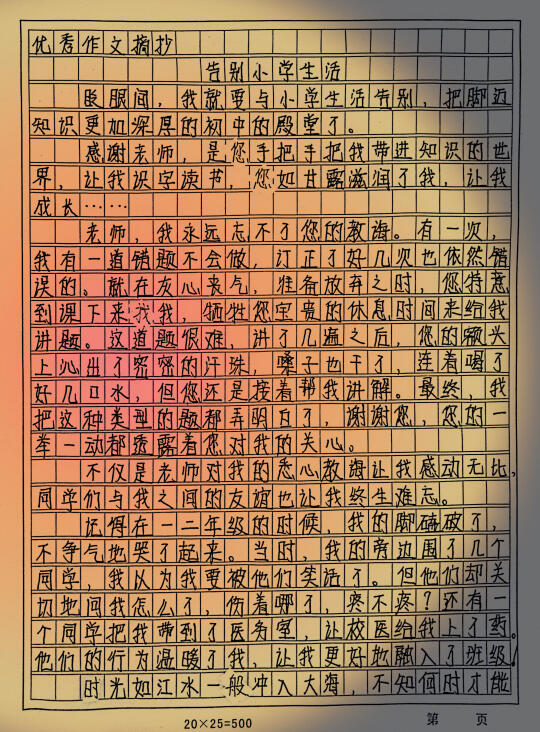 优秀作文摘抄
告别小学生活
眨眼间，我就要与小学生活告别，把脚迈
知识更加深厚的初中的殿堂了。
感谢老师，是您手把手把我带进知识的世
界，让我识字读书，您如甘露滋润了我，让我
成长……
老师，我永远忘不了您的教诲。有一次，
我有一道错题不会做，订正了好几次也依然错
误的。就在灰心丧气，准备放弃之时，您特意
到课下来找我，牺牲您宝贵的休息时间来给我
讲题。这道题很难，讲了几遍之后，您的额头
上沁出了密密的汗珠，嗓子也干了，连着喝了
好几口水，但您还是接着帮我讲解。最终，我
把这种类型的题都弄明白了，谢谢您，您的一
举一动都透露着您对我的关心。
不仅是老师对我的悉心教诲让我感动无比，
同学们与我之间的友谊也让我终生难忘。
记得在一二年级的时候，我的脚磕破了，
不争气地哭了起来。当时，我的旁边围了几个
同学，我以为我要被他们笑话了。但他们却关
切地问我怎么了，伤着哪了，疼不疼？还有一
个同学把我带到了医务室，让校医给我上了药。
他们的行为温暖了我，让我更好地融入了班级！
时光如江水一般冲入大海，不知何时才能
20×25=500
第 页